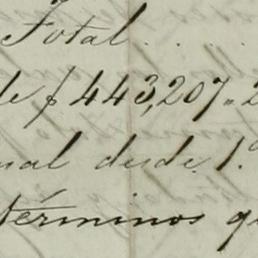 Total . . .
de $ 443,207.. 2
ual desde 1.º
términos q